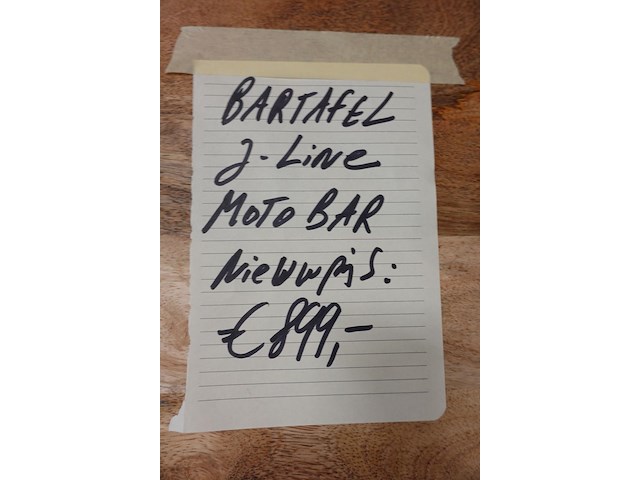 BARTAFEL
J-Line
MOTO BAR
Nieuwpijs:
€899,-